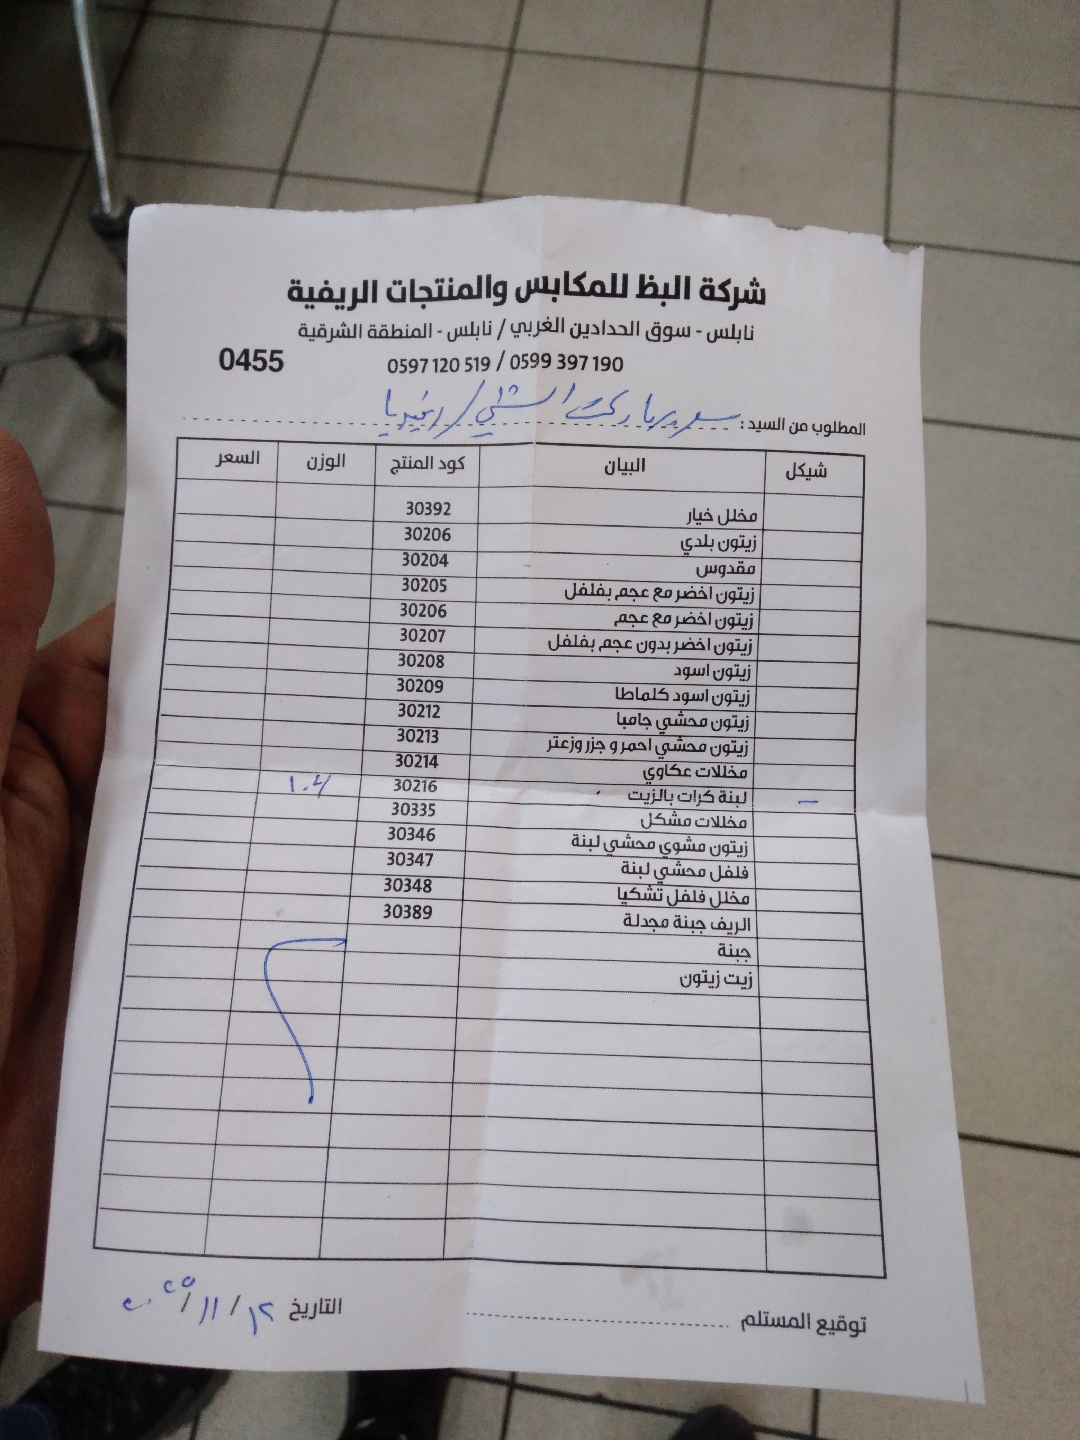 شركة البظ للمكابس والمنتجات الريفية
نابلس - سوق الحدادين الغربي / نابلس - المنطقة الشرقية
0455 0597 120 519 / 0599 397 190
المطلوب من السيد : سوبر ماركت الشني / رفيديا
شيكل البيان كود المنتج الوزن السعر
مخلل خيار 30392
زيتون بلدي 30206
مقدوس 30204
زيتون اخضر مع عجم بفلفل 30205
زيتون اخضر مع عجم 30206
زيتون اخضر بدون عجم بفلفل 30207
زيتون اسود 30208
زيتون اسود كلماطا 30209
زيتون محشي جامبا 30212
زيتون محشي احمر و جزر وزعتر 30213
مخللات عكاوي 30214
– لبنة كرات بالزيت 30216
مخللات مشكل 30335
زيتون مشوي محشي لبنة 30346
فلفل محشي لبنة 30347
مخلل فلفل تشكيا 30348
الريف جبنة مجدلة 30389
جبنة
زيت زيتون
توقيع المستلم التاريخ ١٢ / ١١ / ٢٠٢٥